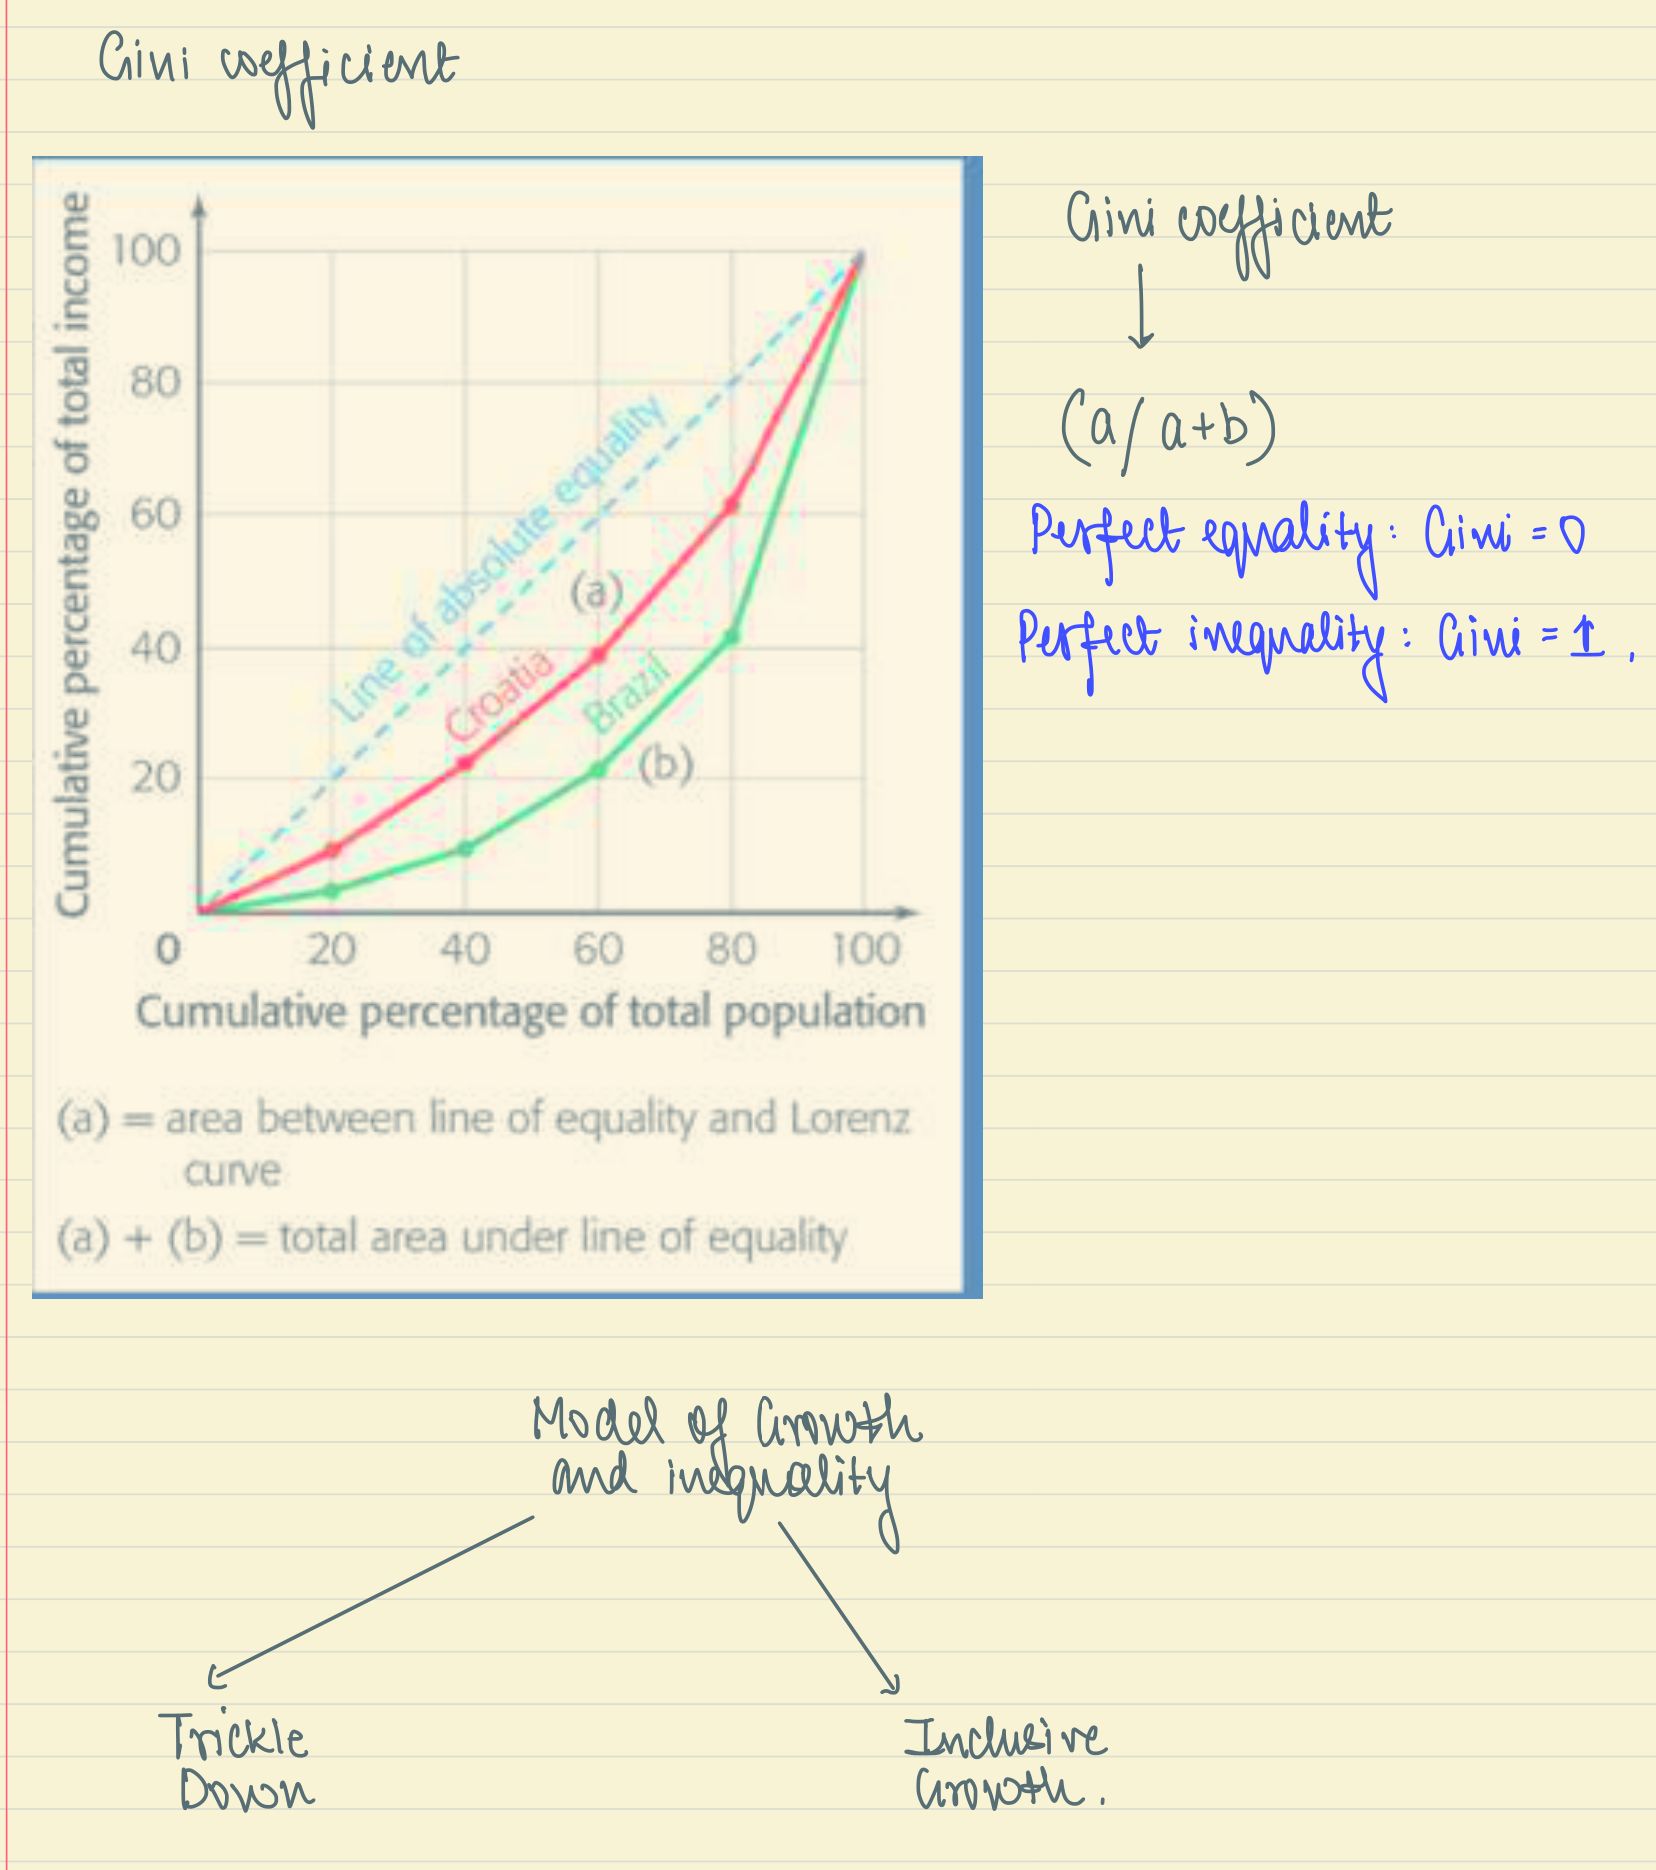 Gini coefficient
Cumulative percentage of total income
100
80
60
40
20
0
20 40 60 80 100
Cumulative percentage of total population
Line of absolute equality
(a)
Croatia
Brazil
(b)
(a) = area between line of equality and Lorenz
curve
(a) + (b) = total area under line of equality
Gini coefficient
(a/a+b)
Perfect equality: Gini = 0
Perfect inequality: Gini = 1.
Model of Growth
and inequality
Trickle
Down
Inclusive
Growth.